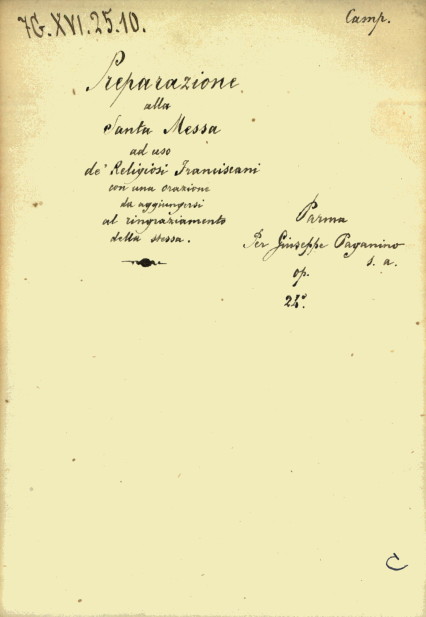 7G.XVI.25.10.
Camp.
Preparazione
alla
Santa Messa
ad uso
de' Religiosi Franciscani
con una orazione
da aggiungersi
al ringraziamento
della stessa.
Parma
Per Giuseppe Paganino
s. a.
op.
24º.
C